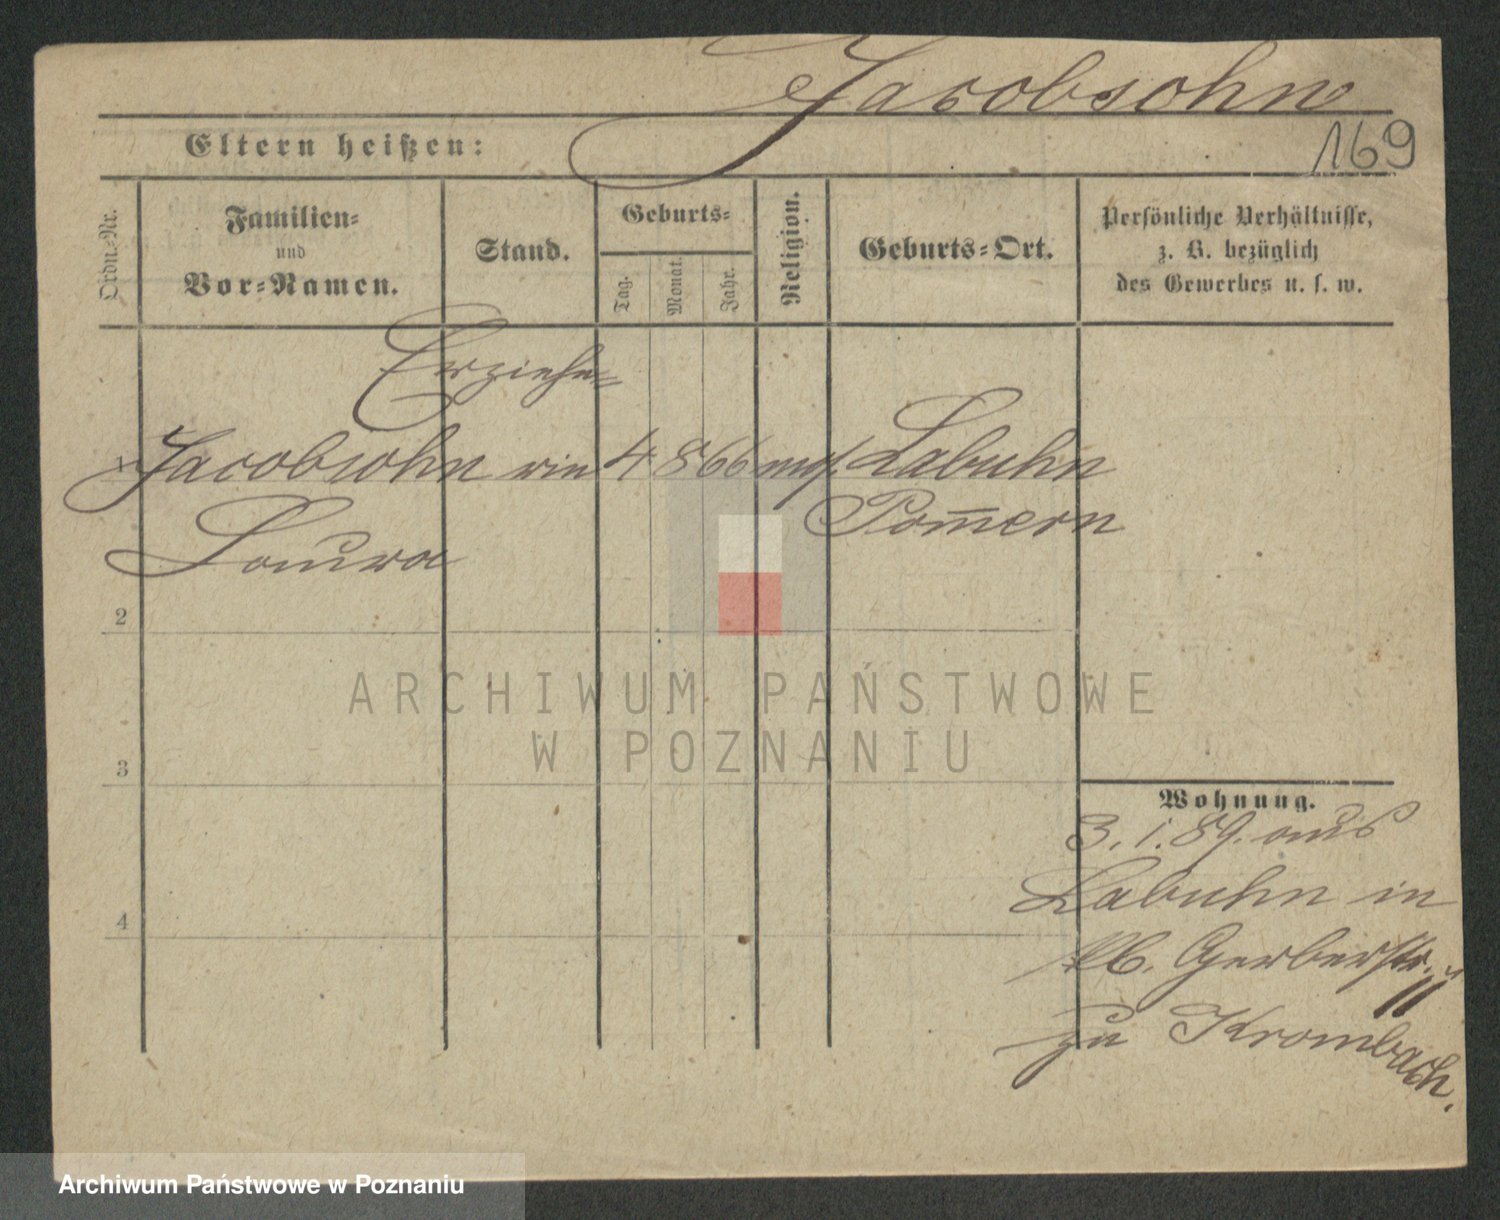 Jacobsohn
169
Eltern heißen:
Ordn.-Nr.
Familien-
und
Vor-Namen.
Stand.
Geburts-
Tag.
Monat.
Jahr.
Religion.
Geburts-Ort.
Persönliche Verhältnisse,
z. B. bezüglich
des Gewerbes u. s. w.
Erziehe-
1 Jacobsohn rin 4 8 66 mos. Labuhn
Pom̄ern
Laura
2
3
4
Wohnung.
3. 1. 89. aus
Labuhn in
Gerberstr. 11
zu Krombach.
ARCHIWUM PAŃSTWOWE
W POZNANIU
Archiwum Państwowe w Poznaniu